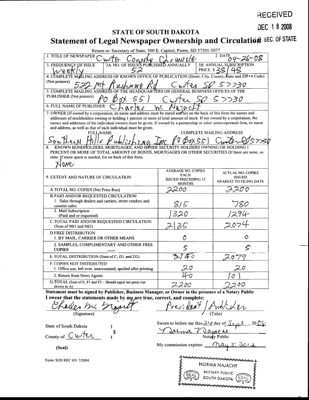 RECEIVED
DEC 18 2008
S.D. SEC. OF STATE
STATE OF SOUTH DAKOTA
Statement of Legal Newspaper Ownership and Circulation
Return to: Secretary of State, 500 E. Capitol, Pierre, SD 57501-5077
1. TITLE OF NEWSPAPER Custer County Chronicle
2. DATE 09-26-08
3. FREQUENCY OF ISSUE Weekly
3A. NO. OF ISSUES PUBLISHED ANNUALLY 52
3B. ANNUAL SUBSCRIPTION PRICE $35/45
4. COMPLETE MAILING ADDRESS OF KNOWN OFFICE OF PUBLICATION (Street, City, County, State and ZIP+4 Code)
(Not printers) 522 Mt Rushmore Rd Custer SD 57730
5. COMPLETE MAILING ADDRESS OF THE HEADQUARTERS OF GENERAL BUSINESS OFFICES OF THE
PUBLISHER (Not printers) PO Box 551 Custer SD 57730
6. FULL NAME OF PUBLISHER Charles W. Najacht
7. OWNER (If owned by a corporation, its name and address must be stated and
FULL NAME COMPLETE MAILING ADDRESS
Southern Hills Publishing Inc PO Box 551 Custer SD 57730
8. KNOWN BONDHOLDERS, MORTGAGEES, AND OTHER SECURITY HOLDERS OWNING OR HOLDING 1
PERCENT OR MORE OF TOTAL AMOUNT OF BONDS, MORTGAGES OR OTHER SECURITIES (If there are none, so
state. If more space is needed, list on back of this form.
None
9. EXTENT AND NATURE OF CIRCULATION
AVERAGE NO. COPIES EACH ISSUED PRECEDING 12 MONTHS
ACTUAL NO. COPIES ISSUED NEAREST TO FILING DATE
A. TOTAL NO. COPIES (Net Press Run) 2200 2200
B. PAID AND/OR REQUESTED CIRCULATION
1. Sales through dealers and carriers, street vendors and
counter sales 815 780
2. Mail Subscription
(Paid and or requested) 1320 1294
C. TOTAL PAID AND/OR REQUESTED CIRCULATION
(Sum of 9B1 and 9B2) 2135 2074
D. FREE DISTRIBUTION
1. BY MAIL, CARRIER OR OTHER MEANS
2. SAMPLES, COMPLIMENTARY AND OTHER FREE
COPIES 5 5
E. TOTAL DISTRIBUTION (Sum of C, D1 and D2) 2140 2079
F. COPIES NOT DISTRIBUTED
1. Office use, left over, unaccounted, spoiled after printing 20 20
2. Return from News Agents 40 101
G. TOTAL (Sum of E, F1 and F2 - Should equal net press run
shown in A) 2200 2200
Statement must be signed by Publisher, Business Manager, or Owner in the presence of a Notary Public
I swear that the statements made by me are true, correct, and complete:
President / Publisher
(Signature) (Title)
State of South Dakota )
County of Custer )
(Seal)
Sworn to before me this 29 day of Sept 2008
Norma Najacht
Notary Public
My commission expires: May 5, 2012
Form: SOS REC 051 7/2004
NORMA NAJACHT
NOTARY PUBLIC
SOUTH DAKOTA